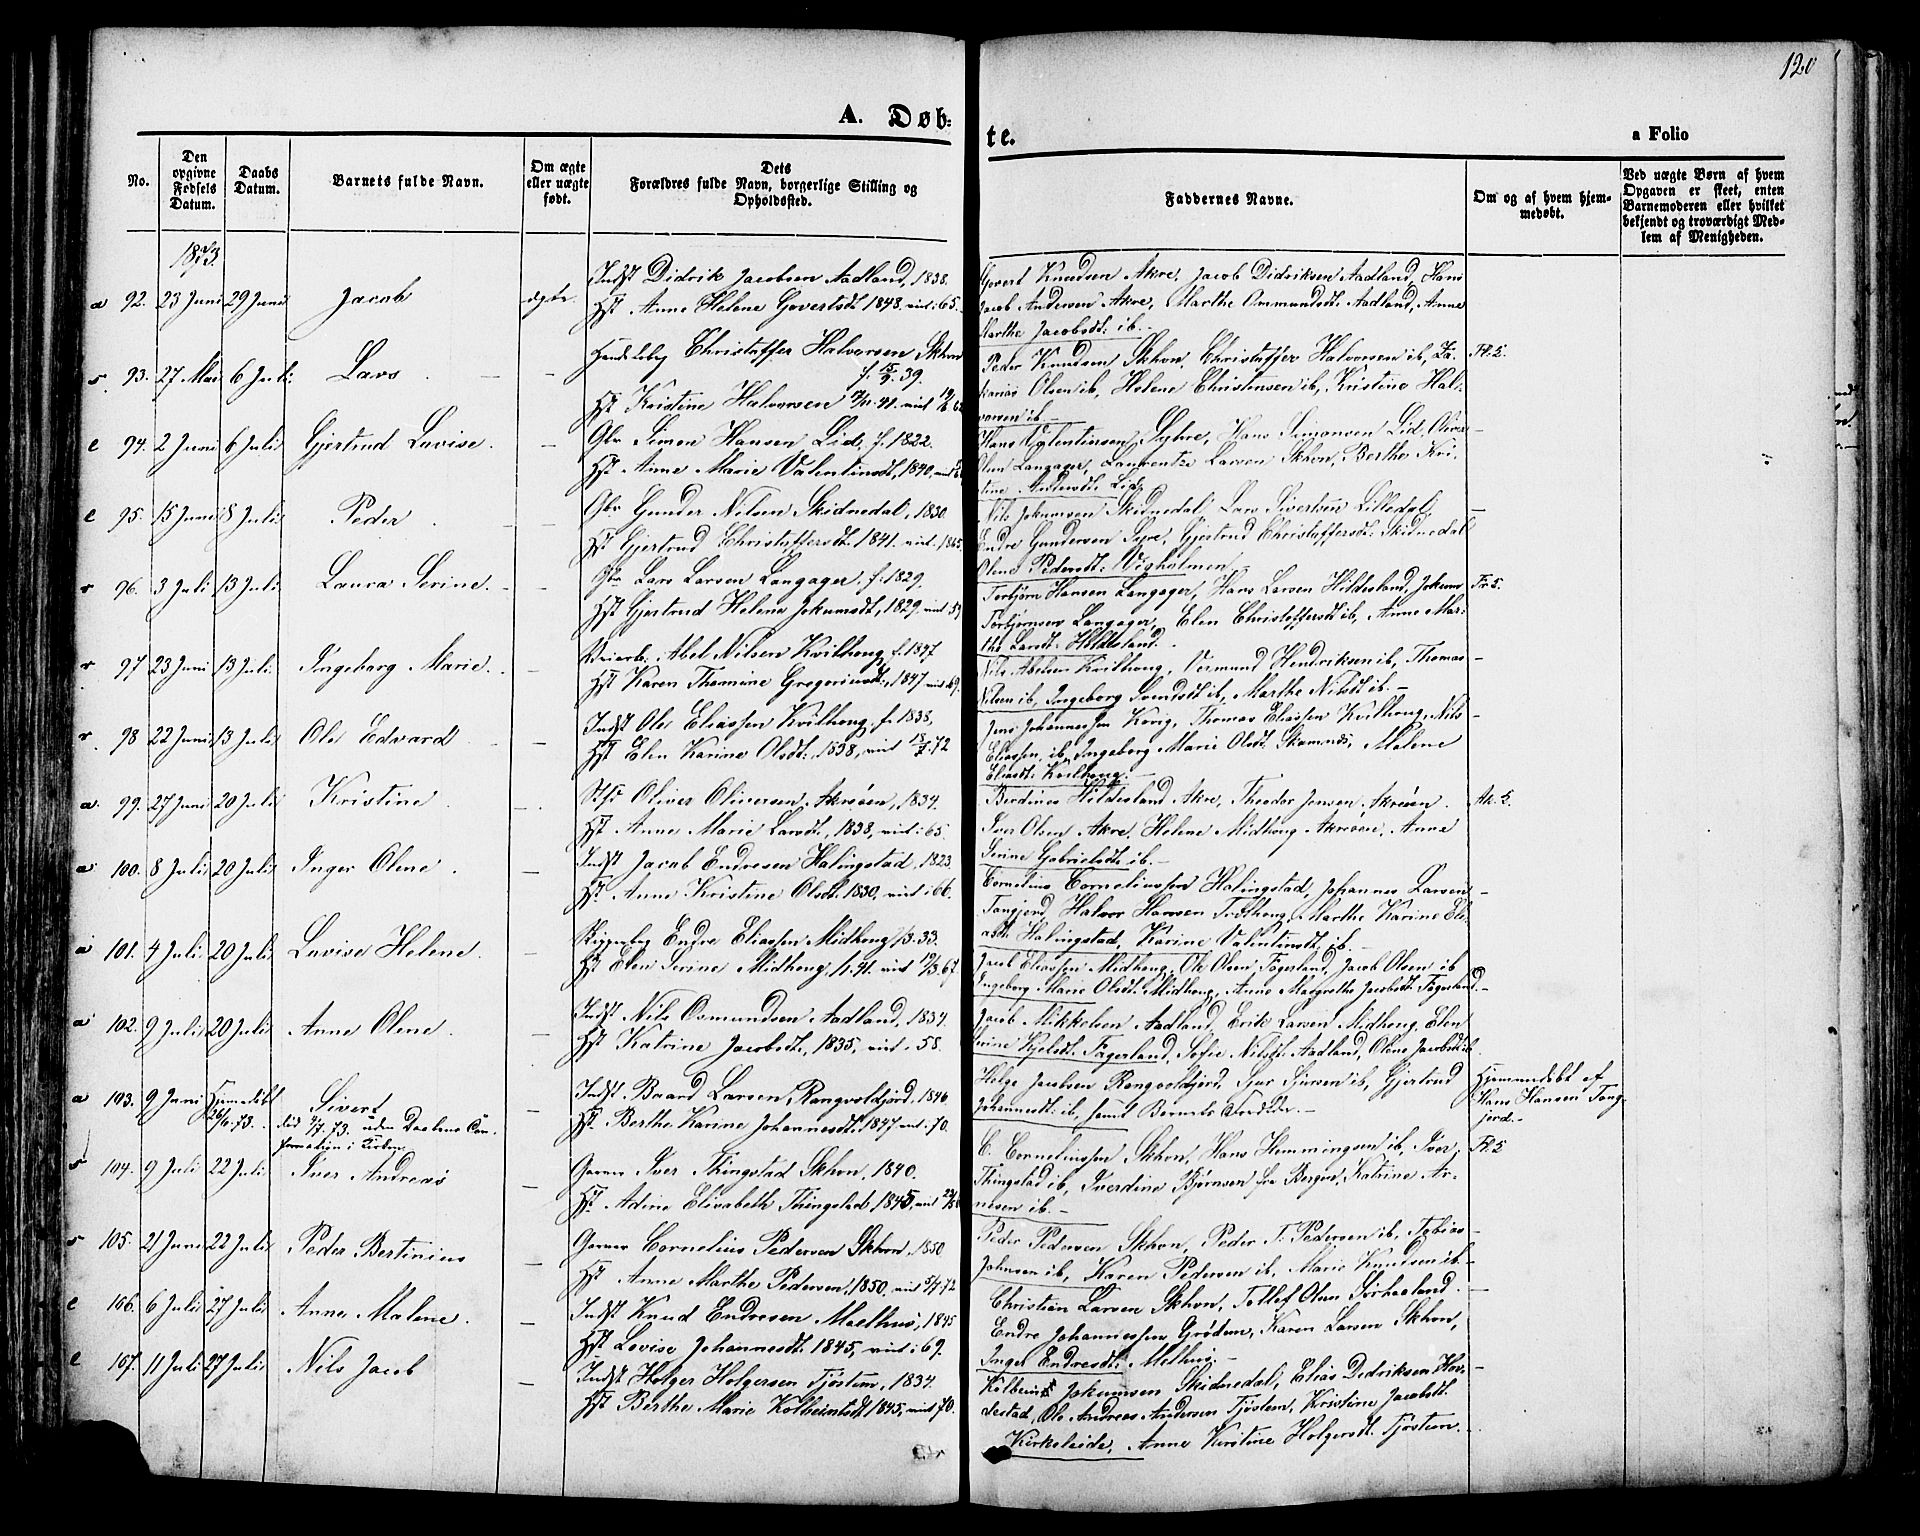 120
A. Døb-
te.
a Folio
No.
Den opgivne Fødsels Datum.
Daabs Datum.
Barnets fulde Navn.
Om ægte eller uægte født.
Dets Forældres fulde Navn, borgerlige Stilling og Opholdssted.
Faddernes Navne.
Om og af hvem hjemmedøbt.
Ved uægte Børn af hvem Opgaven er skeet, enten Barnemoderen eller hvilket bekjendt og troværdigt Medlem af Menigheden.
1873.
a 92. 23 Juni 29 Juni Jacob ægte.
Indst Didrik Jacobsen Aadland, 1838.
Hst Anne Helene Govertsdt 1848. vid: 65.
Govert Knudsen Akre, Jacob Didriksen Aadland, Hans
Jacob Andersen Akre, Marthe Ommundsdt. Aadland, Anne
Marthe Jacobsdt. ib.
s 93. 27 Mai 6 Juli Lars — —
Handelsbg Christoffer Halvorsen Skhvn
f. 15/9. 39.
Hst Kristine Halvorsen
Peder Knudsen Skhvn, Christoffer Halvorsen ib, Za-
karias Olsen ib, Helene Christensen ib, Kristine Hal-
vorsen ib. —
Fl. 5.
e 94. 2 Juni 6 Juli Gjertrud Lovise. —
Gbr Simon Hansen Lid, f. 1822.
Hst Anne Marie Valentinsdt, 1840,
Hans Valentinsen Syhre, Hans Simonsen Lid, Oliver
Olsen Langager, Laurentze Larsen Skhvn, Berthe Kri-
stine Andersdt. Lid.
—
e 95. 15 Juni 8 Juli Peder — —
Gbr Gunder Nilsen Skidnedal, 1830.
Hst Gjertrud Christoffersdt. 1841. vid. 1865.
Nils Jokumsen Skidnedal, Lars Sivertsen Lilledal,
Endre Gundersen Syre, Gjertrud Christoffersdt. Skidnedal
Olene Pedersdt. Vigholmen —
—
r 96. 3 Juli 13 Juli Laura Serine. — —
Gbr Lars Larsen Langager, f. 1829.
Hst Gjertrud Helene Jokumsdt, 1829. vid 59
Torbjørn Hansen Langager, Hans Larsen Hildesland, Jokum
Torbjørnsen Langager, Elen Christoffersdt ib, Anne Mar-
the Larsdt. Hildesland.
Fr. 5.
r 97 23 Juni 13 Juli Ingeborg Marie. —
Abel Nilsen Kvilhoug f. 1847
Hst Karen Thomine Gregoriusdt., 1847 vid 69.
Nils Abelsen Kvilhoug, Vermund Hendriksen ib, Thomas
Nilsen ib, Ingeborg Svendsdt ib, Marthe Nilsdt ib. —
—
r. 98 22 Juni 13 Juli Ole Edvard — —
Indst Ole Eliassen Kvilhoug, f. 1838,
Hst Elen Karine Olsdt. 1838, vid 72
Jens Johannessen Kovig, Thomas Eliassen Kvilhoug, Nils
Eliassen ib, Ingeborg Marie Olsdt. Skamnes, Malene
Eliasdt. Kvilhoug. —
—
a. 99. 27 Juni 20 Juli Kristine —
Oliver Oliversen Akreøen, 1834.
Hst Anne Marie Larsdt, 1838, vid: 65
Berdines Hildesland Akre, Theodor Jensen Akreøen.
Iver Olsen Akre, Helene Midhoug Akreøen, Anne
Serine Gabrielsdt ib. —
Ak. 5.
a 100. 8 Juli 20 Juli Inger Olene —
Indst Jacob Endresen Halingstad, 1823
Hst Anne Kristine Olsdt. 1830, vid: 66.
Cornelius Corneliussen Halingstad, Johannes Larsen
Tangjerd, Halvor Hansen Midhoug, Marthe Karine Eli-
asdt Halingstad, Karine Valentinsdt. ib. —
—
a 101. 4 Juli 20 Juli Lovise Helene. —
Skipperbg Endre Eliassen Midhoug, 33.
Hst Elen Serine Midhoug, 41. vid 67.
Jacob Eliassen Midhoug, Ole Olsen Fagerland, Jacob Olsen ib
Ingeborg Marie Olsdt. Midhoug, Anne Margrethe Jacobsdt. Fagerland. —
a 102. 9 Juli 20 Juli Anne Olene. —
Indst Nils Osmundsen Aadland, 1834.
Hst Katrine Jacobsdt., 1835, vid. 58.
Jacob Mikkelsen Aadland, Erik Larsen Midhoug, Elen
Serine Kjelsdt. Fagerland, Sofie Nilsdt. Aadland, Olene Jacobsdt ib.
a 103. 9 Juni Hjemmedøbt 26/6. 73. Sivert —
død 4/7. 73. uden Daabens Con-
firmation i Kirken
Indst. Baard Larsen Rangvoldsjord, 1846.
Hst. Berthe Karine Johannesdt. 1847 vid: 70.
Helge Jacobsen Rangvoldsjord, Sjur Sjursen ib, Gjertrud
Johannesdt: ib, samt Barnets Forældre. —
Hjemmedøbt af
Hans Hansen Tang-
jerd. —
s 104. 9 Juli 22 Juli Iver Andreas —
Garver Iver Thingstad Skhvn, 1840.
Hst. Adine Elisabeth Thingstad 1845, vid
C. Corneliussen Skhvn, Hans Hemmingsen ib, Iver
Thingstad ib, Iverdine Bjørnsen fra Bergen, Katrine Ar-
nesen ib. —
Fl. 5
s 105. 21 Juni 22 Juli Peder Bertinius —
Garver Cornelius Pedersen Skhvn, 1850
Hst Anne Marthe Pedersen, 1850, vid 5/4 72
Peder Pedersen Skhvn, Peder T. Pedersen ib, Tobias
Johnsen ib, Karen Pedersen ib, Marie Knudsen ib. —
e 106. 6 Juli 27 Juli Anne Malene. —
Indst Knud Endresen Mælhus, 1845
Hst Lovise Johannesdt 1845, vid: 69.
Christian Larsen Skhvn, Tollef Olsen Sørhaaland. —
Endre Johannessen Grødem, Karen Larsen Skhvn,
Inger Endresdt. Melhus. —
e 107. 11 Juli 27 Juli Nils Jacob —
Indst Holger Holgersen Tjøstem, 1834.
Hst Berthe Marie Kolbeinsdt 1845, vid 70.
Kolbein Jokumsen Skidnedal, Elias Didriksen Hav-
destad, Ole Andreas Andersen Tjøstem, Kristine Jacobsdt.
Kirkeleide, Anne Kirstine Holgersdt. Tjøstem.
—